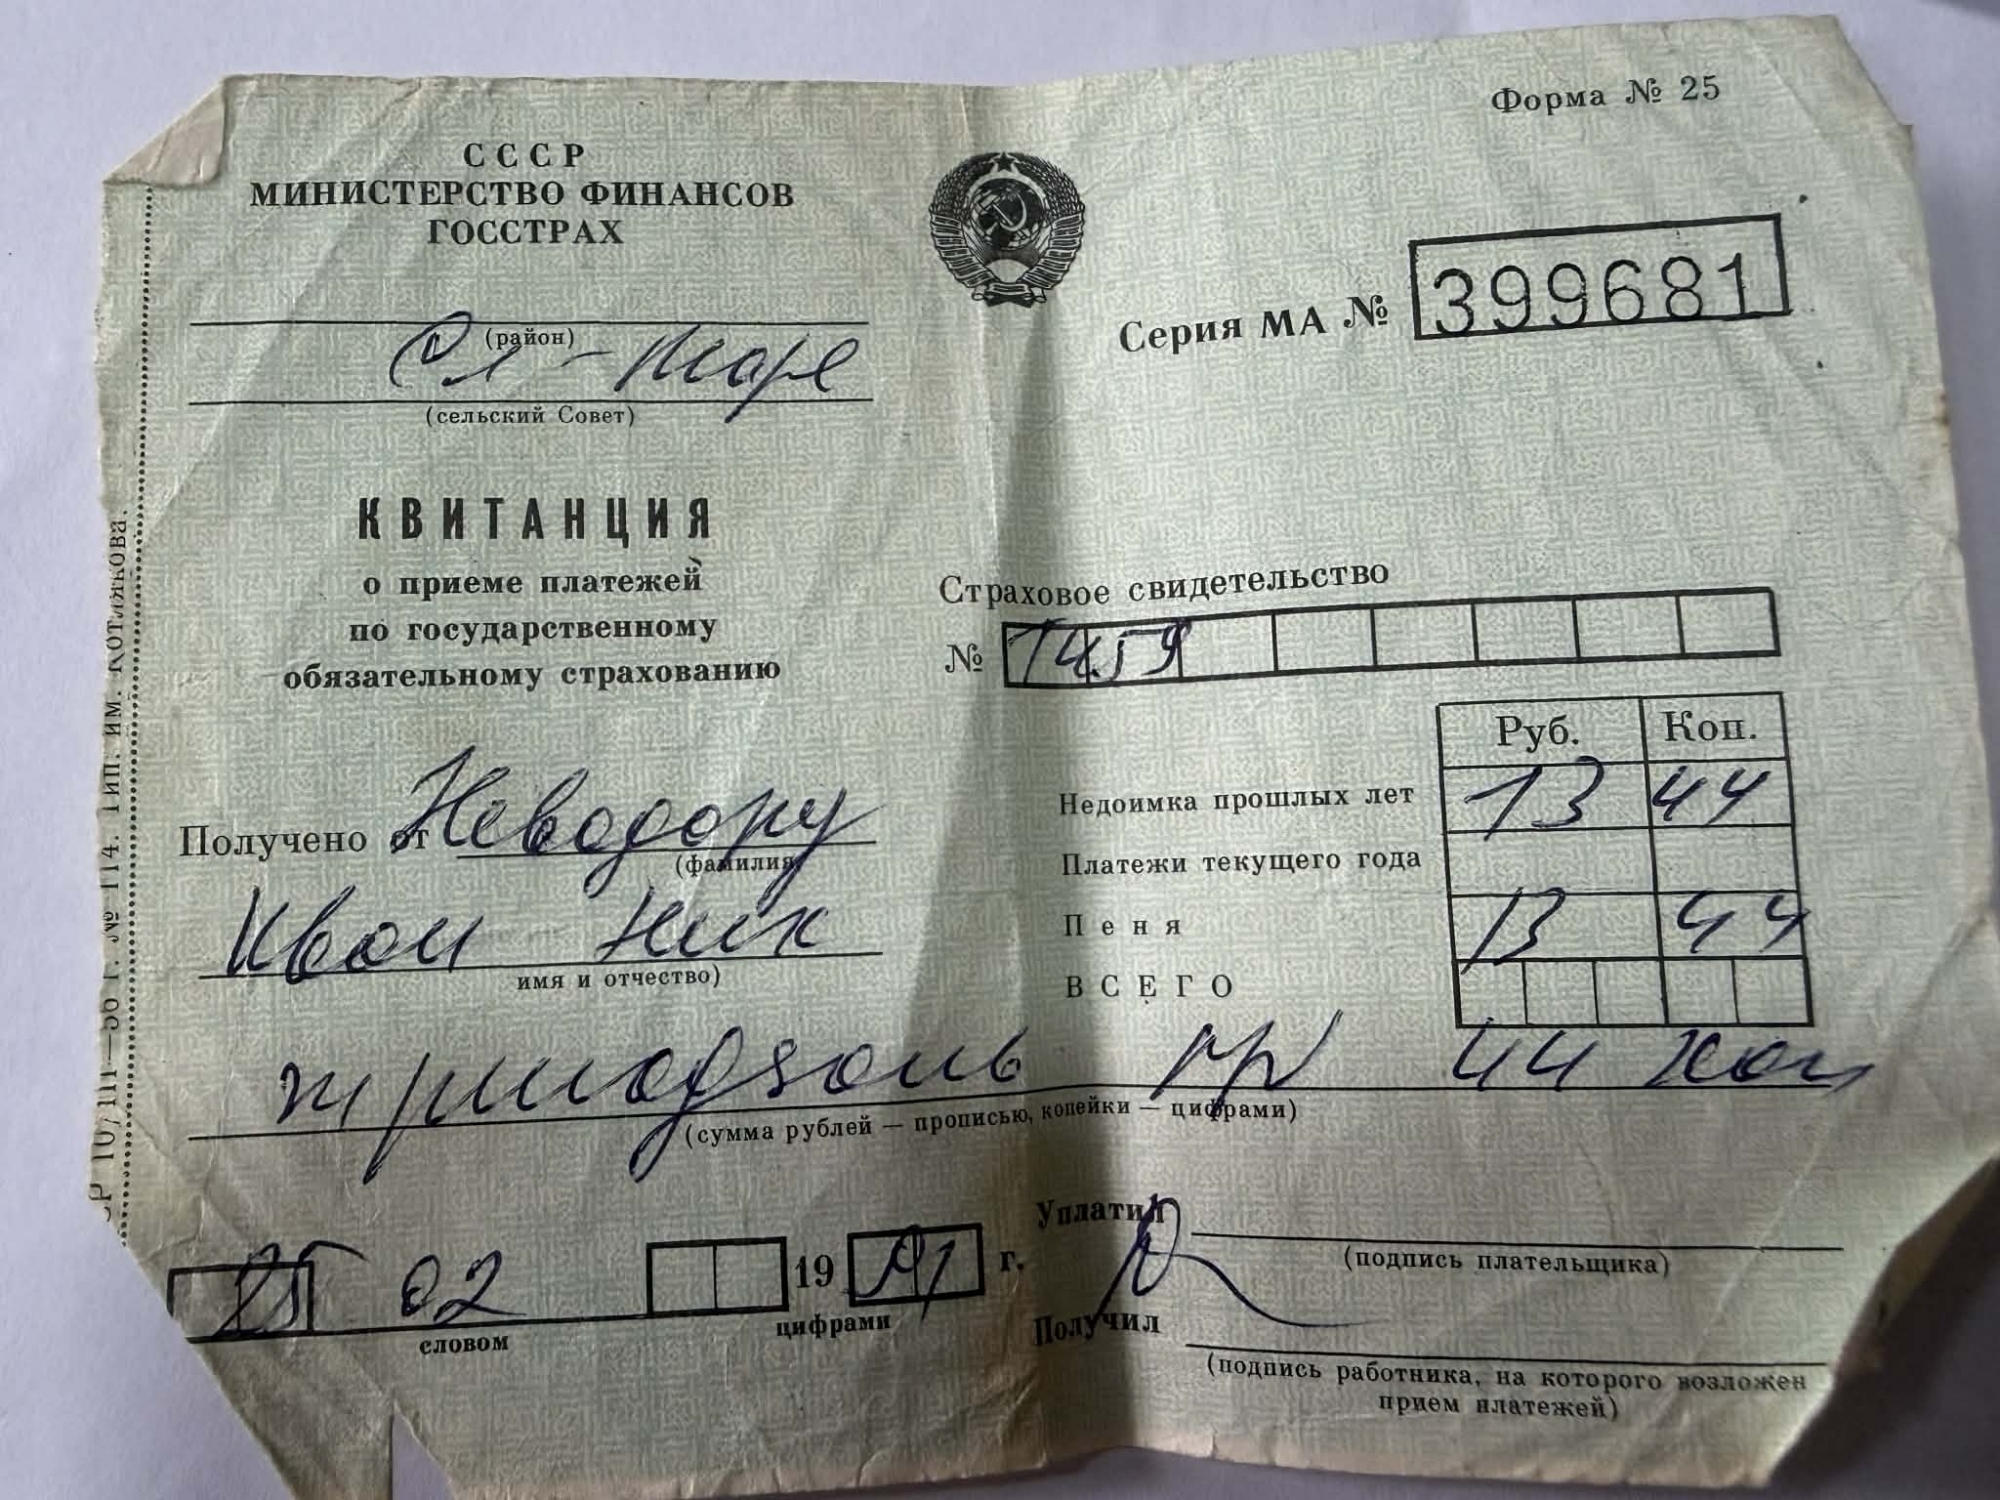 Форма № 25
СССР
МИНИСТЕРСТВО ФИНАНСОВ
ГОССТРАХ
(район)
(сельский Совет)
Серия МА № 399681
КВИТАНЦИЯ
о приеме платежей
по государственному
обязательному страхованию
Страховое свидетельство
№ 1459
Руб. Коп.
Недоимка прошлых лет 13 44
Платежи текущего года
Пеня 13 44
ВСЕГО
Получено от
(фамилия)
Иван Ник
имя и отчество)
44 коп
(сумма рублей — прописью, копейки — цифрами)
25 02 1991 г.
словом цифрами
Уплатил
(подпись плательщика)
Получил
(подпись работника, на которого возложен
прием платежей)
№ 114. Тип. им. Котлякова.